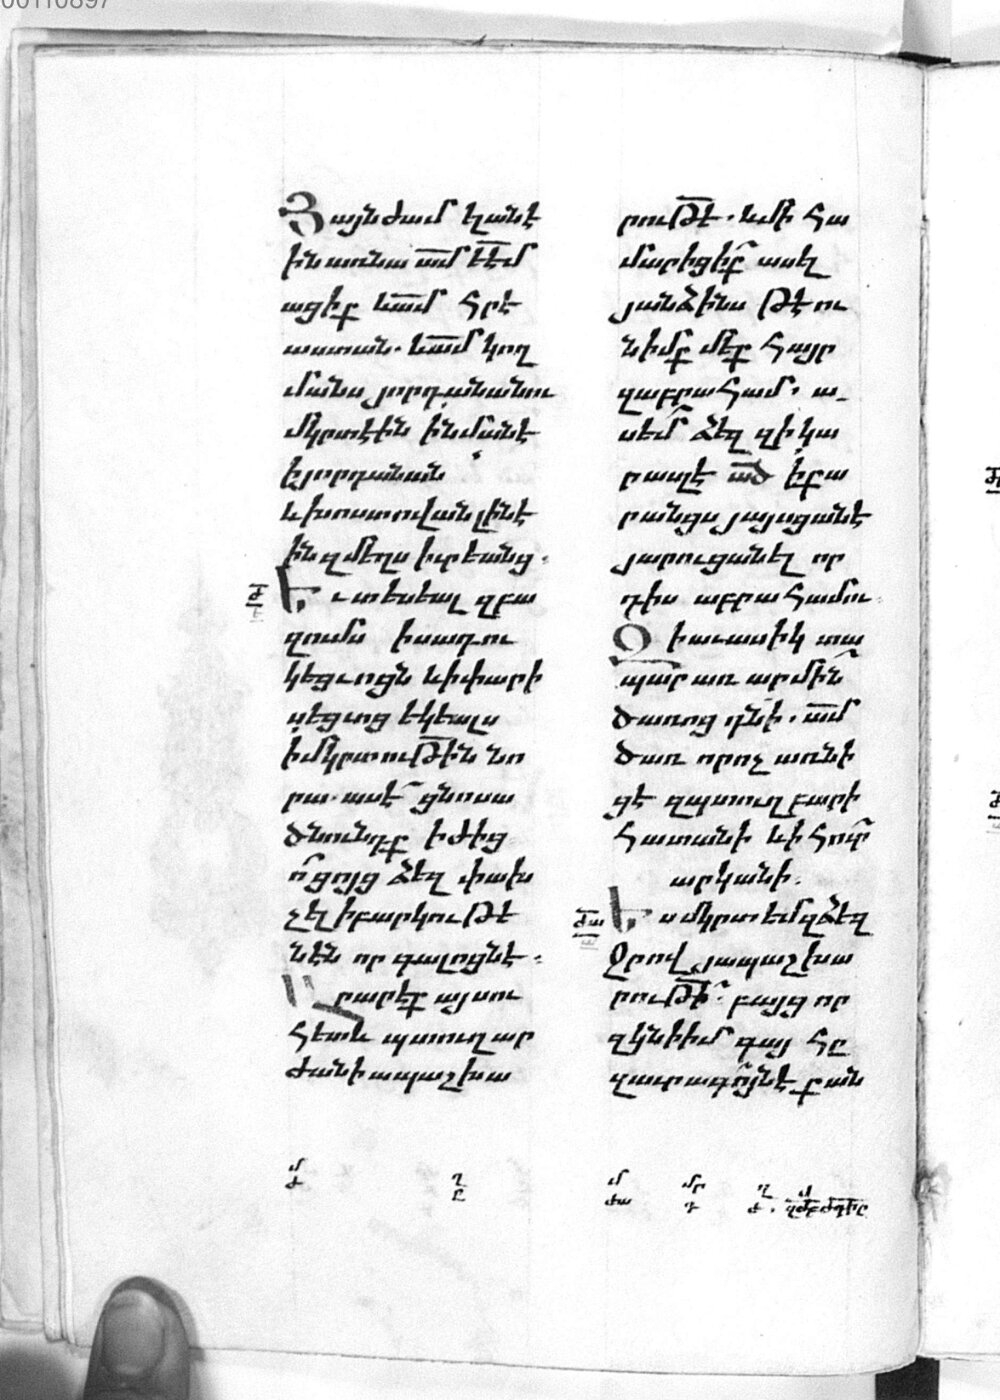 00110897
Յայնժամ ելանէ
ին առնա ամ եէմ
ացիք և ամ հրէ
աստան. և ամ կող
մանս յորդանանու
մկրտէին ինմանէ
ի յորդանան
և խոստովան լինէ
ին զմեղս իւրեանց.
Ժ
Եւ տեսեալ զբա
զումս ի սադու
կեցւոցն և ի փարի
սեցւոց եկեալս
ի մկրտութին նո
րա. ասէ ցնոսա
ծնունդք իժից
ո՞ ցոյց ձեզ փախ
չել ի բարկութէ
նէն որ գալոցնէ.
Արարէք այսու
հետև պտուղ ար
ժանի ապաշխա
րութէ. և մի հա
մարիցիք ասել
յանձինս թէ ու
նիմք մեք հայր
զաբրահամ. ա
սեմ ձեզ զի կա
րաւղ է ած ի քա
րանցս յայսցանէ
յարուցանել որ
դիս աբրահամու.
Զի աւասիկ տա
պար առ արմին
ծառոց դնի. ամ
ծառ որ ոչ առնի
ցէ զպտուղ բարի
հատանի և ի հուր
արկանի.
ԺԱ
Ես մկրտեմ զձեզ
ջրով յապաշխա
րութի. բայց որ
զկնի իմ գայ հզ
զաւրագոյն է քան
մ
ժ
ղ
ը
մ
ժա
մր
դ
ղ
ժ.